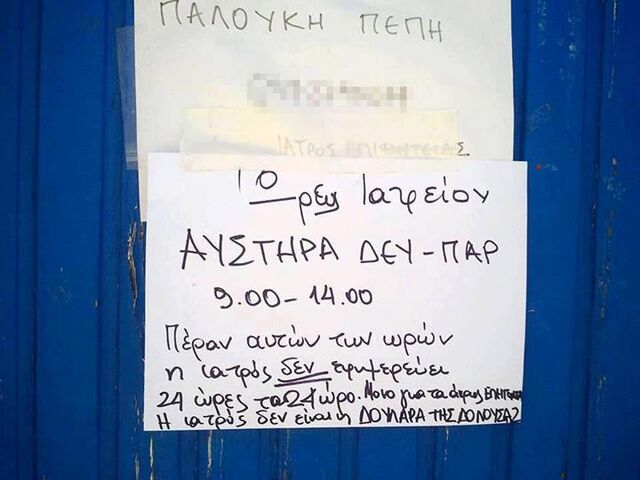 ΠΑΛΟΥΚΗ ΠΕΠΗ
ΙΑΤΡΟΣ
Ώρες Ιατρείου
ΑΥΣΤΗΡΑ ΔΕΥ-ΠΑΡ
9.00-14.00
Πέραν αυτών των ωρών
η ιατρός δεν εφημερεύει
24 ώρες το 24ωρο. Μονο για τα άκρως ΕΠΕΙΓΟΝΤΑ
Η ιατρός δεν είναι η ΔΟΥΛΑΡΑ ΤΗΣ ΔΟΝΟΥΣΑΣ